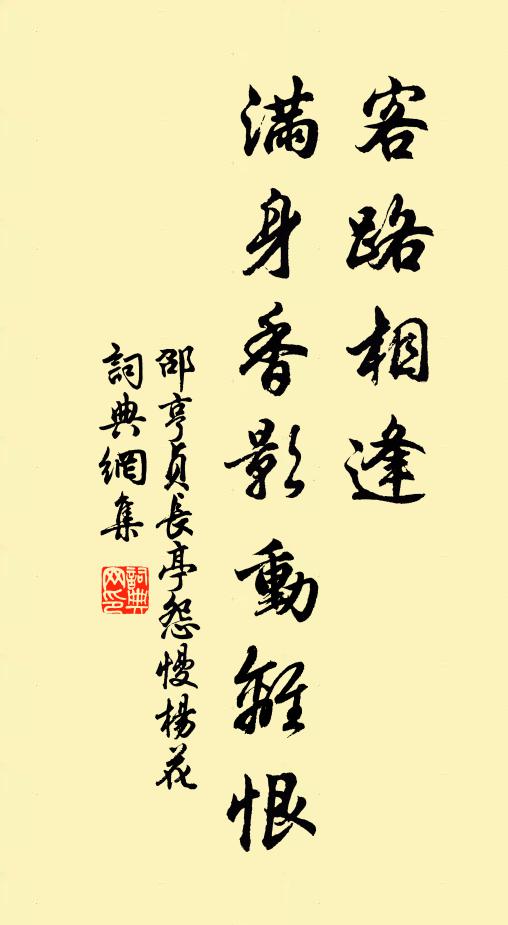 客路相逢
滿身香影動離恨
邵亨貞長亭怨慢楊花
詞典網集
詞典
网印